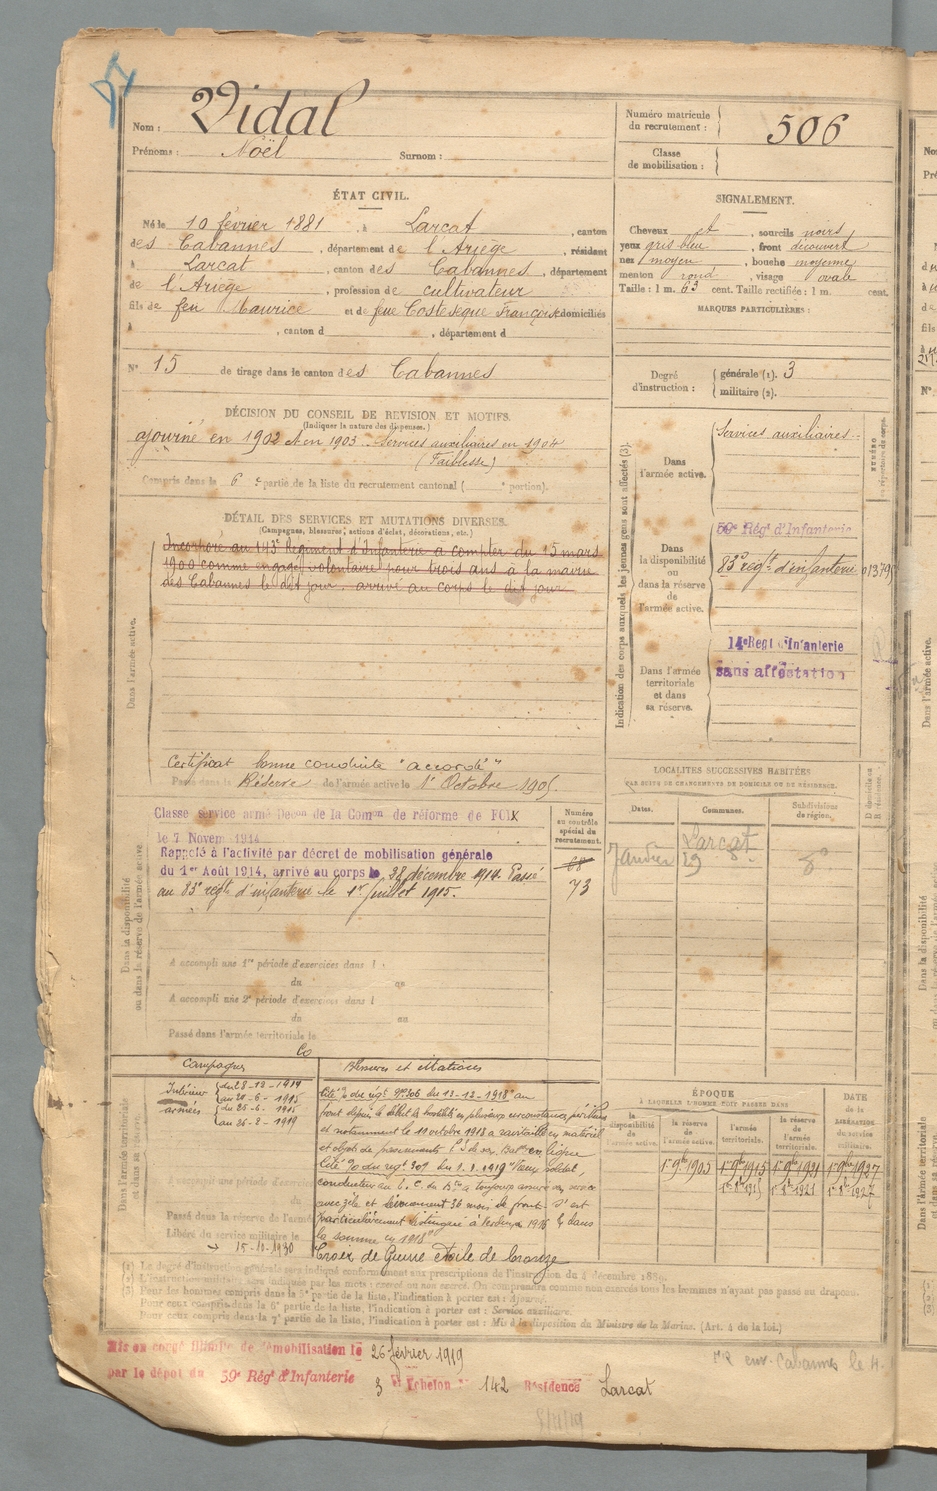 Nom : Vidal
Prénoms : Noël Surnom :
Numéro matricule du recrutement : 506
Classe de mobilisation :
ÉTAT CIVIL.
Né le 10 février 1881, à Larcat, canton
des Cabannes, département de l'Ariège, résidant
à Larcat, canton des Cabannes, département
de l'Ariège, profession de cultivateur
fils de feu Maurice et de feue Costesèque Françoise domiciliés
à , canton d , département d
N° 15 de tirage dans le canton des Cabannes
SIGNALEMENT.
Cheveux et , sourcils noirs
yeux gris bleu, front découvert
nez moyen, bouche moyenne
menton rond, visage ovale
Taille : 1 m. 63 cent. Taille rectifiée : 1 m. cent.
MARQUES PARTICULIÈRES :
Degré d'instruction : générale (1). 3
militaire (2).
DÉCISION DU CONSEIL DE REVISION ET MOTIFS.
(Indiquer la nature des dispenses.)
ajourné en 1902 et en 1903 - Services auxiliaires en 1904
(Faiblesse)
Compris dans la 6e partie de la liste du recrutement cantonal ( e portion).
DÉTAIL DES SERVICES ET MUTATIONS DIVERSES.
(Campagnes, blessures, actions d'éclat, décorations, etc.)
Dans l'armée active.
Incorporé au 143e Régiment d'Infanterie à compter du 15 mars
1900 comme engagé volontaire pour trois ans à la mairie
des Cabannes le dit jour, arrivé au corps le dit jour
Certificat bonne conduite "accordé"
Passé dans la Réserve de l'armée active le 1er Octobre 1905
Indication des corps auxquels les jeunes gens sont affectés (3).
Dans l'armée active.
Services auxiliaires
Dans la disponibilité ou dans la réserve de l'armée active.
59e Régt d'Infanterie
83e régt d'infanterie
Dans l'armée territoriale et dans sa réserve.
14e Regt d'Infanterie
sans affectation
NUMÉRO au répertoire du corps.
Dans la disponibilité ou dans la réserve de l'armée active.
Classé service armé Decon de la Comon de réforme de FOIX
le 7 Novem 1914
Rappelé à l'activité par décret de mobilisation générale
du 1er Août 1914, arrivé au corps le 28 décembre 1914. Passé
au 83e régt d'infanterie le 1er Juillet 1915.
Numéro au contrôle spécial du recrutement.
68
73
A accompli une 1re période d'exercices dans l
du au
A accompli une 2e période d'exercices dans l
du au
Passé dans l'armée territoriale le
LOCALITÉS SUCCESSIVES HABITÉES
PAR SUITE DE CHANGEMENTS DE DOMICILE OU DE RÉSIDENCE.
Dates. Communes. Subdivisions de région. D domicile ou R résidence.
Janvier 29 Larcat
Campagnes
Intérieur du 28-12-1914
armées
Blessures et citations
Cité % du régt n° 306 du 13-12-1918 "au
front depuis le début des hostilités en plusieurs circonstances périlleuses
et notamment le 10 octobre 1918 a ravitaillé en matériel
Cité % du regt 307 du 1.2.1919 "Vieux soldat,
conducteur au a toujours assuré son service
avec zèle et dévouement 36 mois de front. S'est
particulièrement distingué à Verdun 1916 et dans
la Somme en 1918"
Croix de Guerre étoile de bronze
Dans l'armée territoriale et dans sa réserve.
Passé dans la réserve de l'armée
Libéré du service militaire le
15-10-1930
ÉPOQUE
À LAQUELLE L'HOMME DOIT PASSER DANS
la disponibilité de l'armée active. la réserve de l'armée active. l'armée territoriale. la réserve de l'armée territoriale.
DATE de la LIBÉRATION du service militaire.
1er 9bre 1905 1er 9bre 1915 1er 9bre 1921 1er 9bre 1927
(1) Le degré d'instruction générale sera indiqué conformément aux prescriptions de l'instruction du 4 décembre 1889.
(2) L'instruction militaire sera indiquée par les mots : exercé ou non exercé. On comprendra comme non exercés tous les hommes n'ayant pas passé au drapeau.
(3) Pour les hommes compris dans la 5e partie de la liste, l'indication à porter est : Ajourné.
Pour ceux compris dans la 6e partie de la liste, l'indication à porter est : Service auxiliaire.
Pour ceux compris dans la 7e partie de la liste, l'indication à porter est : Mis à la disposition du Ministre de la Marine. (Art. 4 de la loi.)
Mis en congé illimité de démobilisation le 26 février 1919
par le dépôt du 59e Régt d'Infanterie
3 e Echelon N° 142 Résidence Larcat